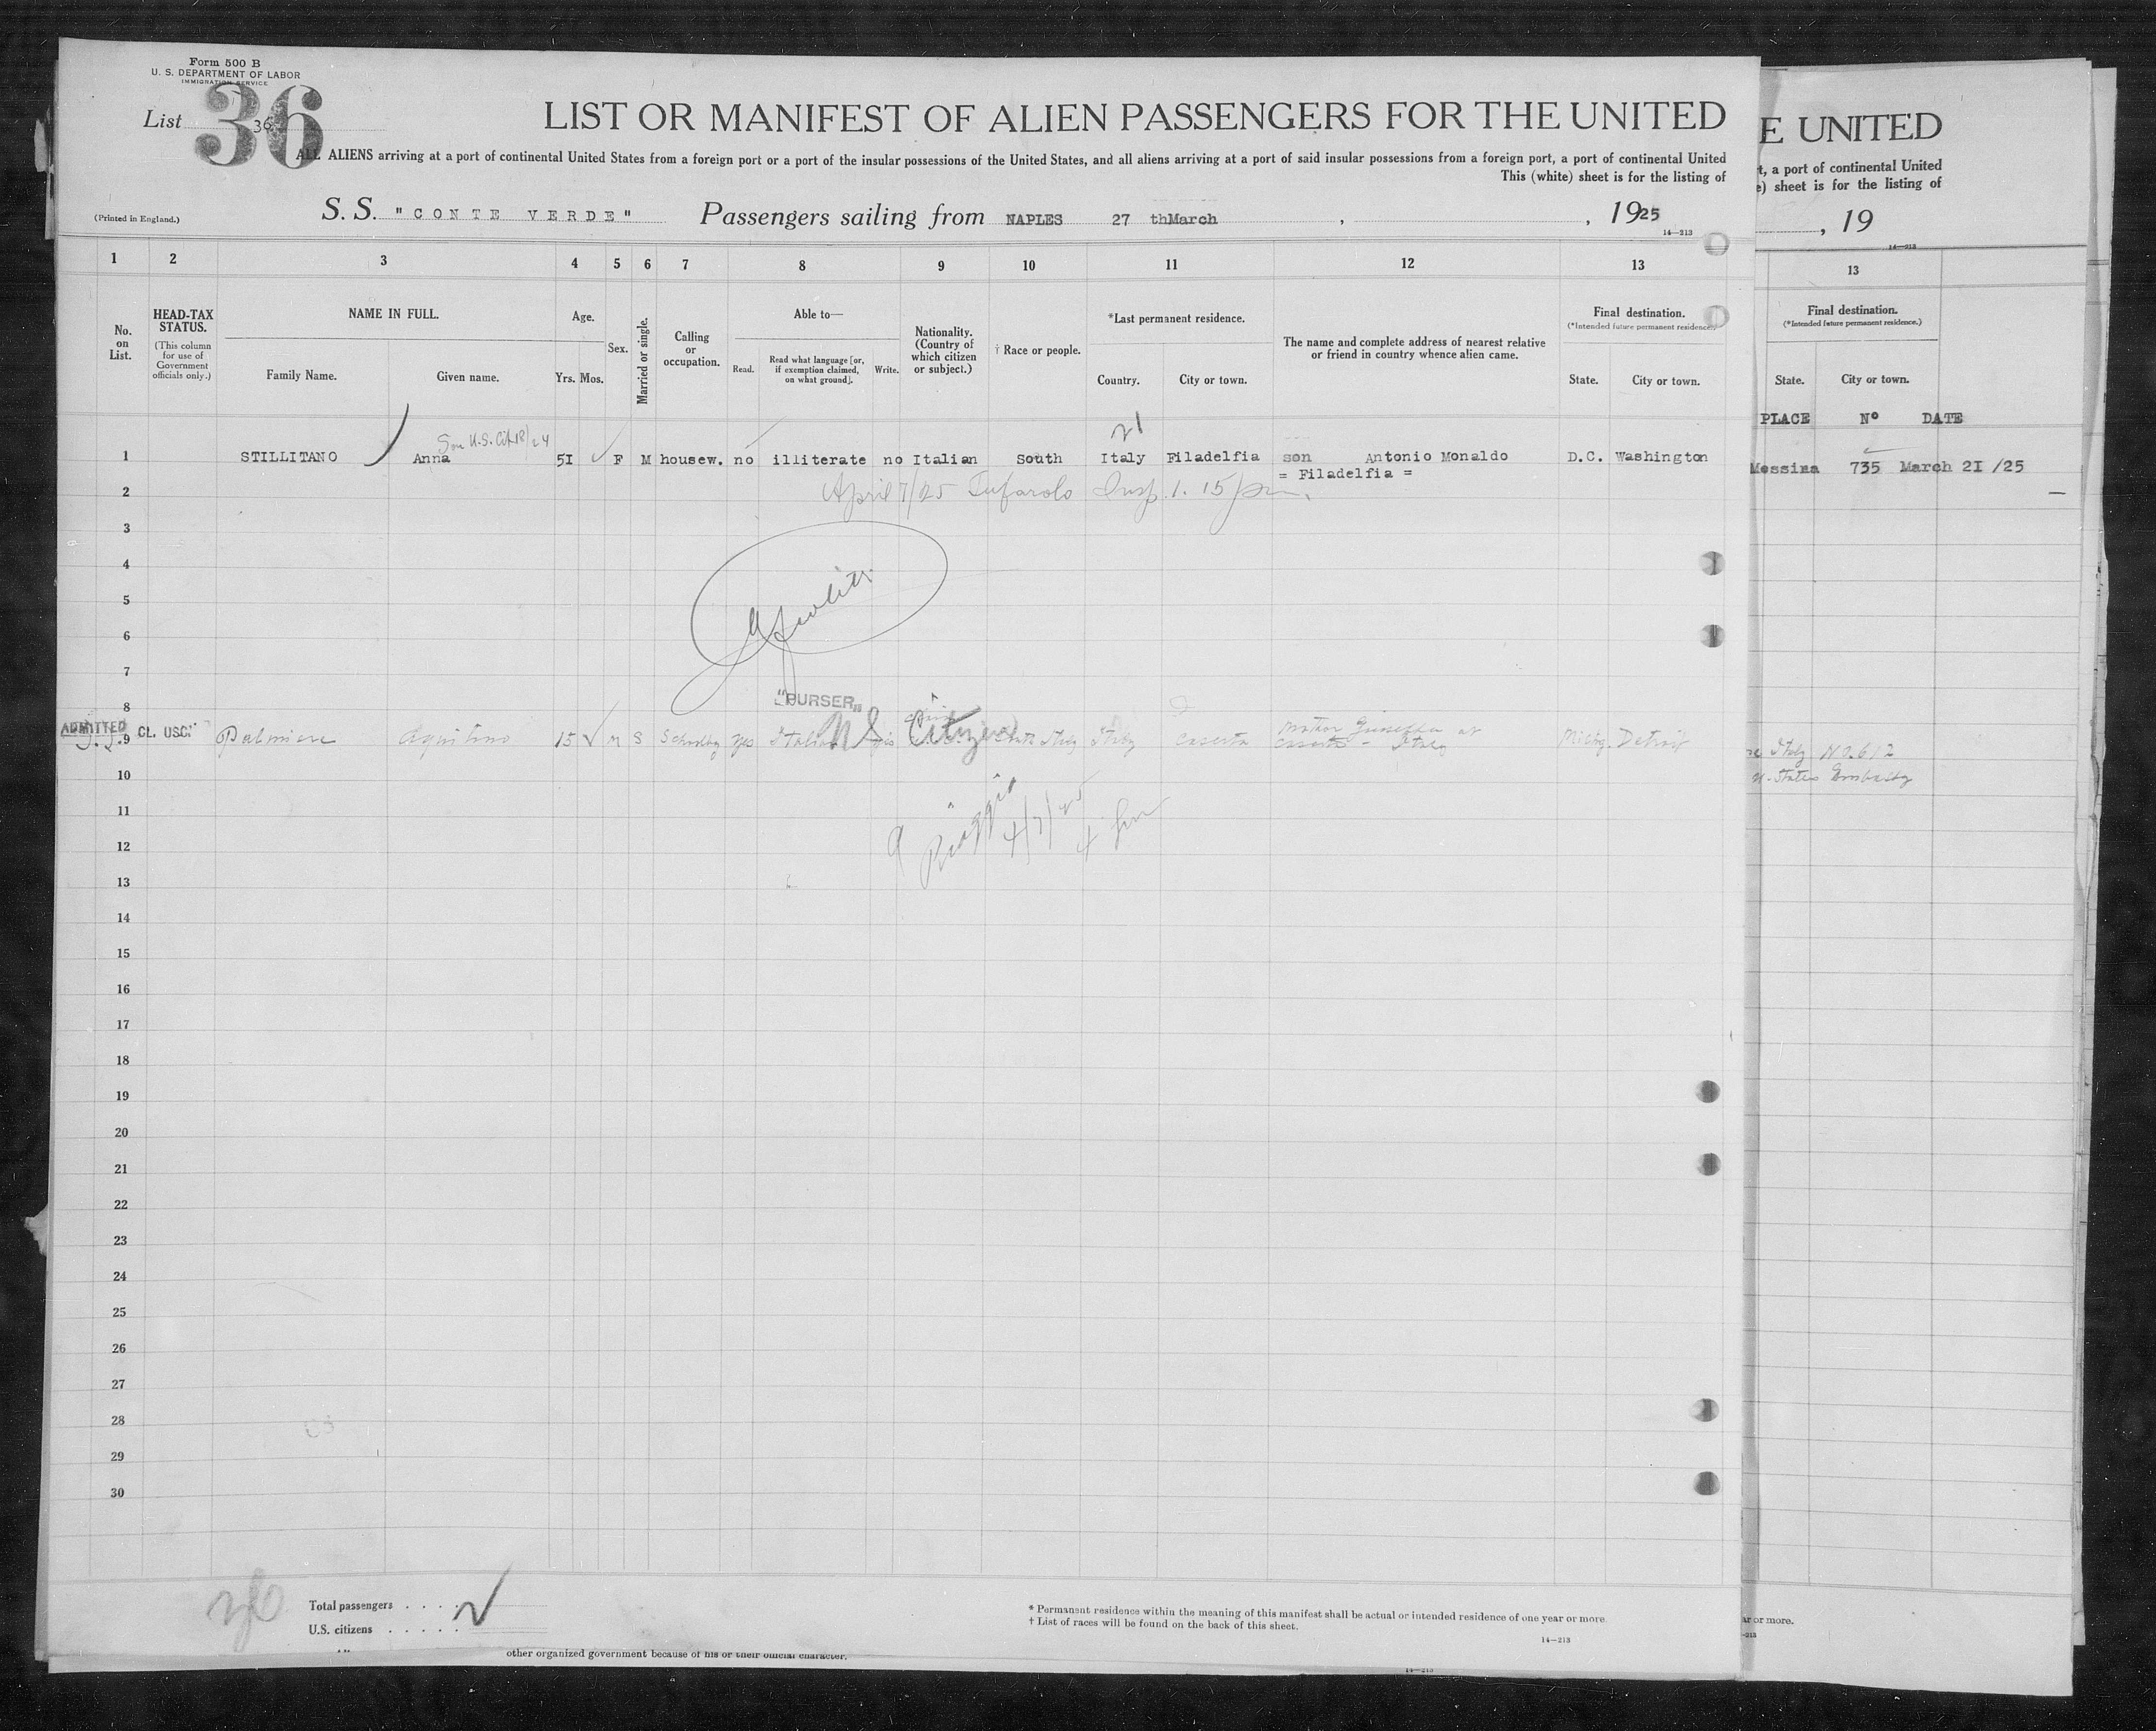 Form 500 B
U. S. DEPARTMENT OF LABOR
IMMIGRATION SERVICE
List 36
36
LIST OR MANIFEST OF ALIEN PASSENGERS FOR THE UNITED
ALL ALIENS arriving at a port of continental United States from a foreign port or a port of the insular possessions of the United States, and all aliens arriving at a port of said insular possessions from a foreign port, a port of continental United
This (white) sheet is for the listing of
(Printed in England.)
S. S. "CONTE VERDE" Passengers sailing from NAPLES 27 thMarch , , 1925
14—213
1 2 3 4 5 6 7 8 9 10 11 12 13
No. on List.
HEAD-TAX STATUS.
(This column for use of Government officials only.)
NAME IN FULL.
Family Name. Given name.
Age.
Yrs. Mos.
Sex.
Married or single.
Calling or occupation.
Able to—
Read. Read what language [or, if exemption claimed, on what ground]. Write.
Nationality. (Country of which citizen or subject.)
† Race or people.
*Last permanent residence.
Country. City or town.
The name and complete address of nearest relative or friend in country whence alien came.
Final destination.
(*Intended future permanent residence.)
State. City or town.
Son U.S. Cit
1 STILLITANO Anna 5I F M housew. no illiterate no Italian South Italy Filadelfia son Antonio Monaldo D.C. Washington
= Filadelfia =
2 April 7/25 Insp. 1. 15 pm.
3
4
5
6
7
"PURSER"
8
ADMITTED
9 CL. USC. Palmiere Aquilino 15 M S Schoolboy yes Italian yes U S Citizen South Italy Italy Caserta mother Giuseppa at
Caserta - Italy Michg. Detroit
10
9 4/7/25 4 pm
11
12
13
14
15
16
17
18
19
20
21
22
23
24
25
26
27
28
29
30
Total passengers . . . .
U.S. citizens . . . . .
* Permanent residence within the meaning of this manifest shall be actual or intended residence of one year or more.
† List of races will be found on the back of this sheet.
14—213
other organized government because of his or their official character.
14—213
E UNITED
t, a port of continental United
e) sheet is for the listing of
, 19
14—213
13
Final destination.
(*Intended future permanent residence.)
State. City or town.
PLACE Nº DATE
Messina 735 March 2I /25
Italy No. 612
U. States Embassy
ar or more.
-213